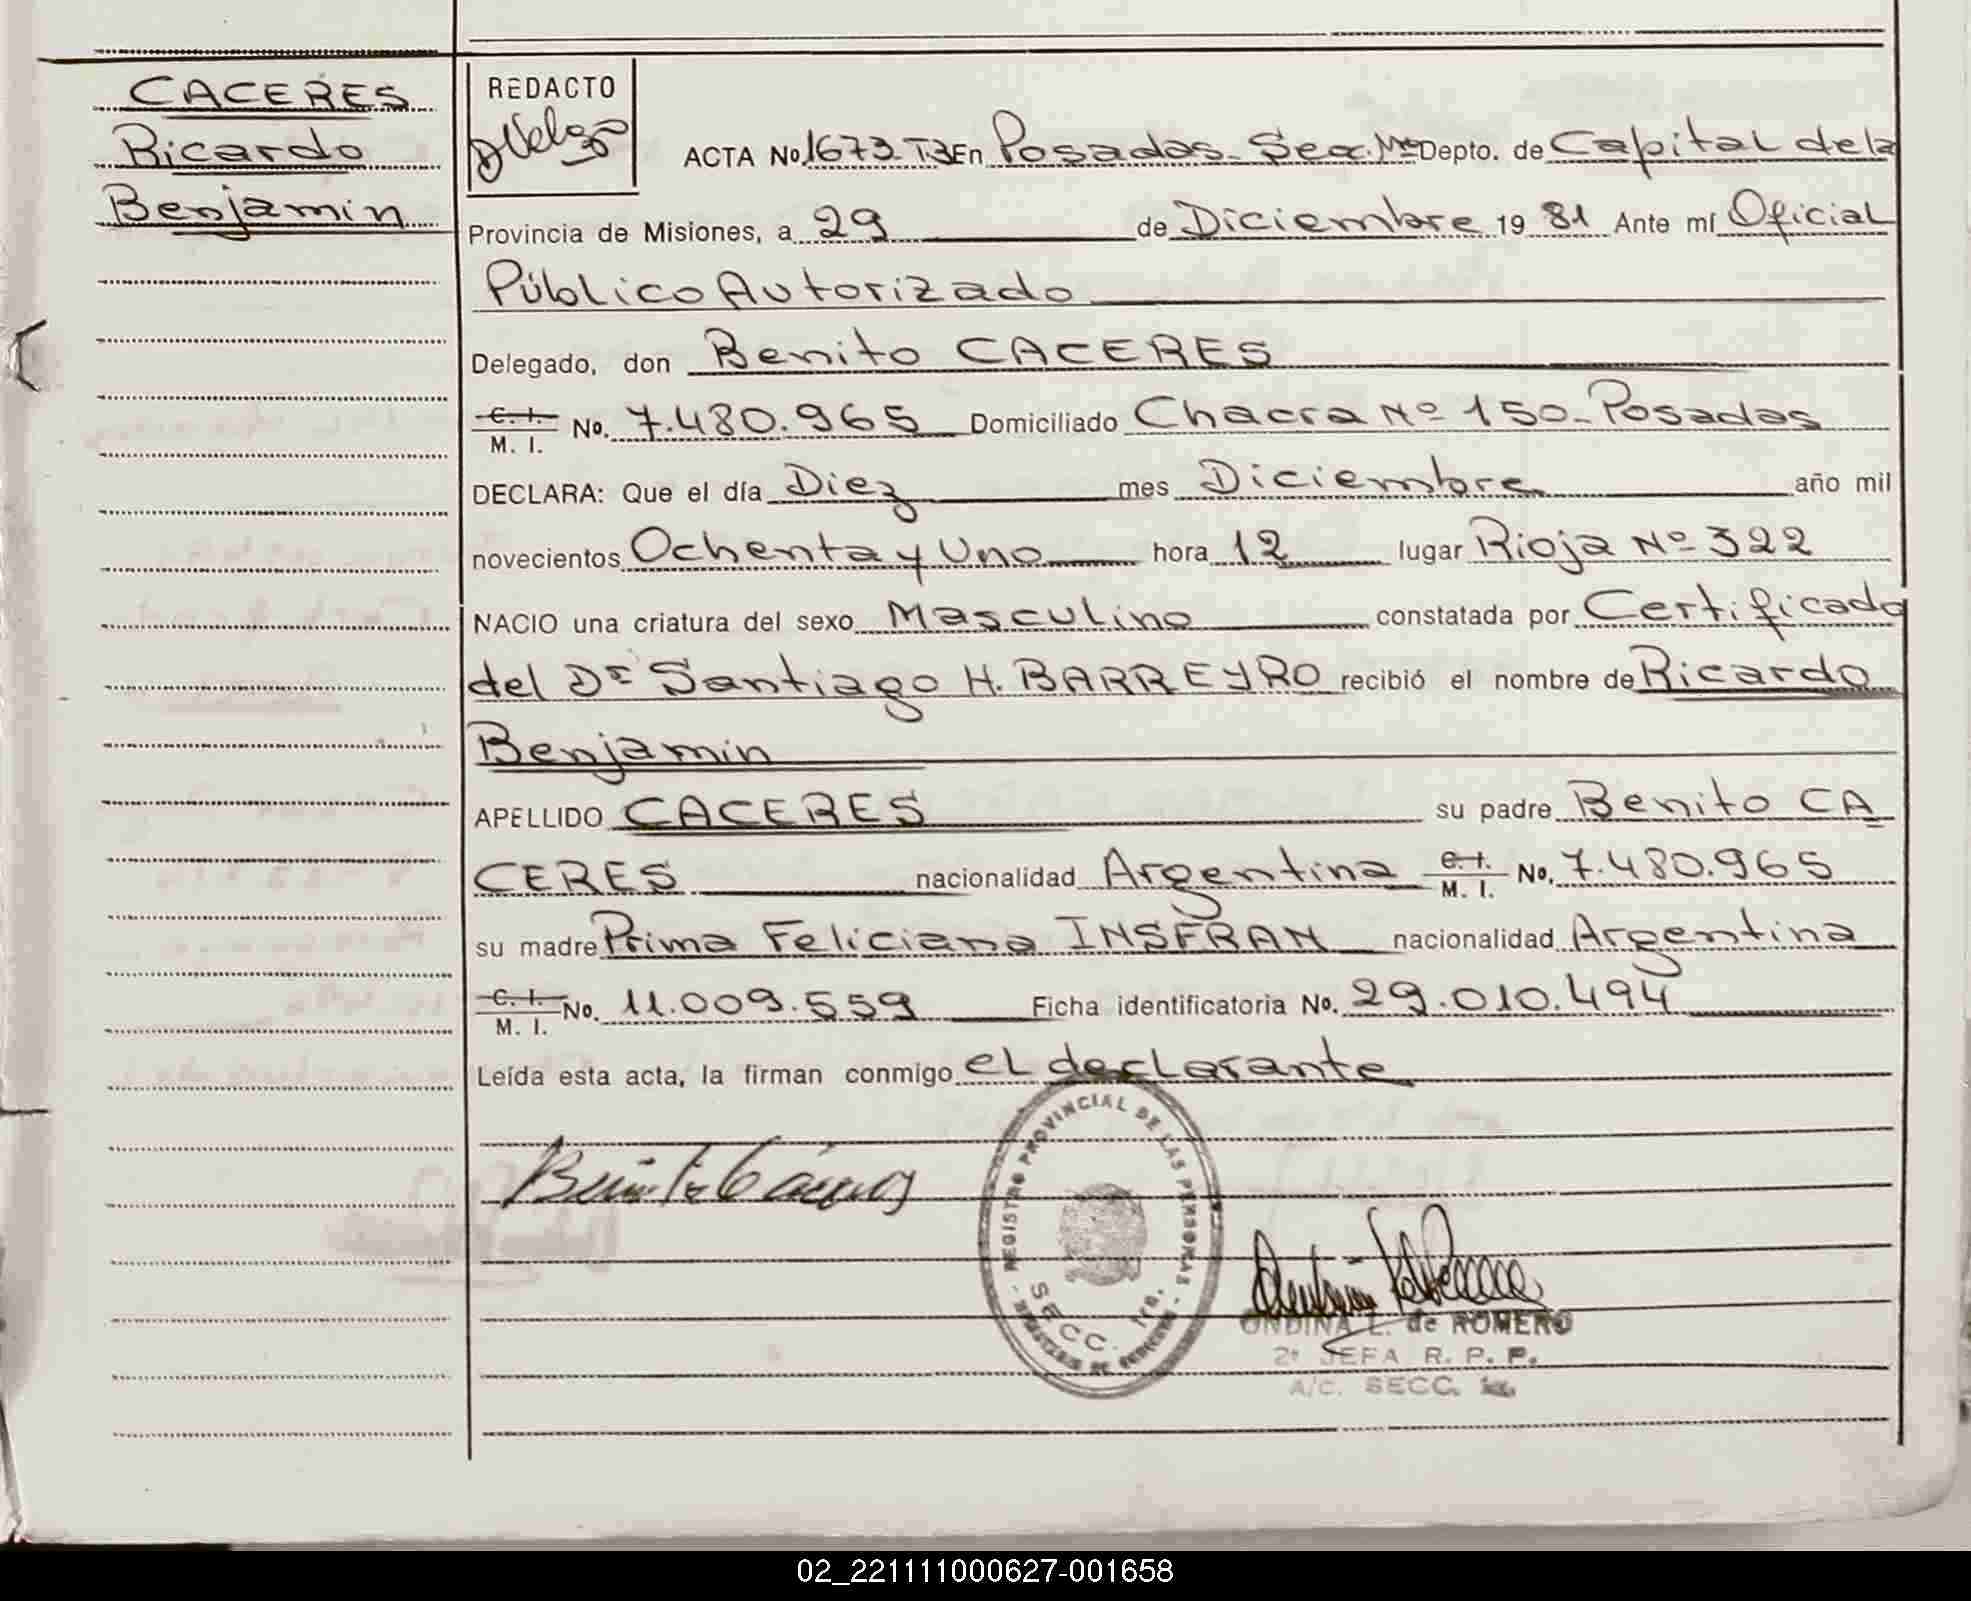 CACERES
Ricardo
Benjamin
REDACTO
ACTA No. 1673 T3 En Posadas- Secc. 1ra Depto. de Capital de la
Provincia de Misiones, a 29 de Diciembre 19 81 Ante mí Oficial
Público Autorizado
Delegado, don Benito CACERES
C. I. / M. I. No. 7.480.965 Domiciliado Chacra Nº 150- Posadas
DECLARA: Que el día Diez mes Diciembre año mil
novecientos Ochenta y Uno hora 12 lugar Rioja Nº 322
NACIO una criatura del sexo Masculino constatada por Certificado
del Dr Santiago H. BARREYRO recibió el nombre de Ricardo
Benjamin
APELLIDO CACERES su padre Benito CA
CERES nacionalidad Argentina C. I. / M. I. No. 7.480.965
su madre Prima Feliciana INSFRAN nacionalidad Argentina
C. I. / M. I. No. 11.009.559 Ficha identificatoria No. 29.010.494
Leída esta acta, la firman conmigo el declarante
Benito Cáceres
REGISTRO PROVINCIAL DE LAS PERSONAS
SECC. 1ra.
ONDINA L. de ROMERO
2ª JEFA R. P. P.
A/C. SECC. 1ra.
02_221111000627-001658